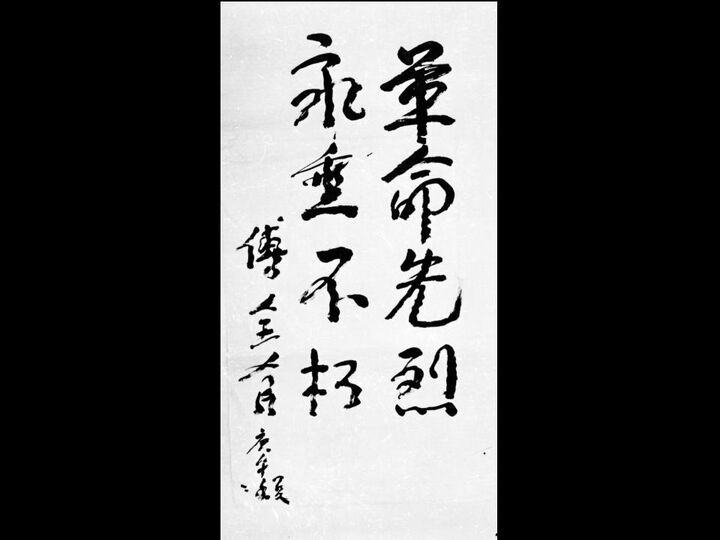 革命先烈
永垂不朽
傅全有